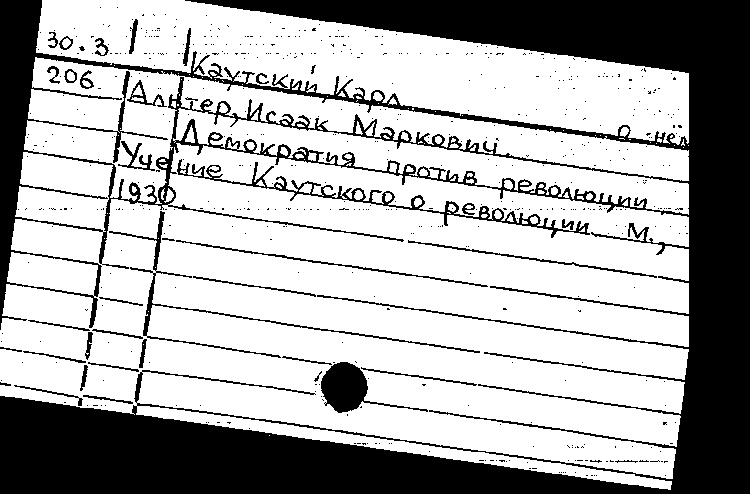 30.3
206
Каутский, Карл
о нём
Альтер, Исаак Маркович.
Демократия против революции.
Учение Каутского о революции. М.,
1930.